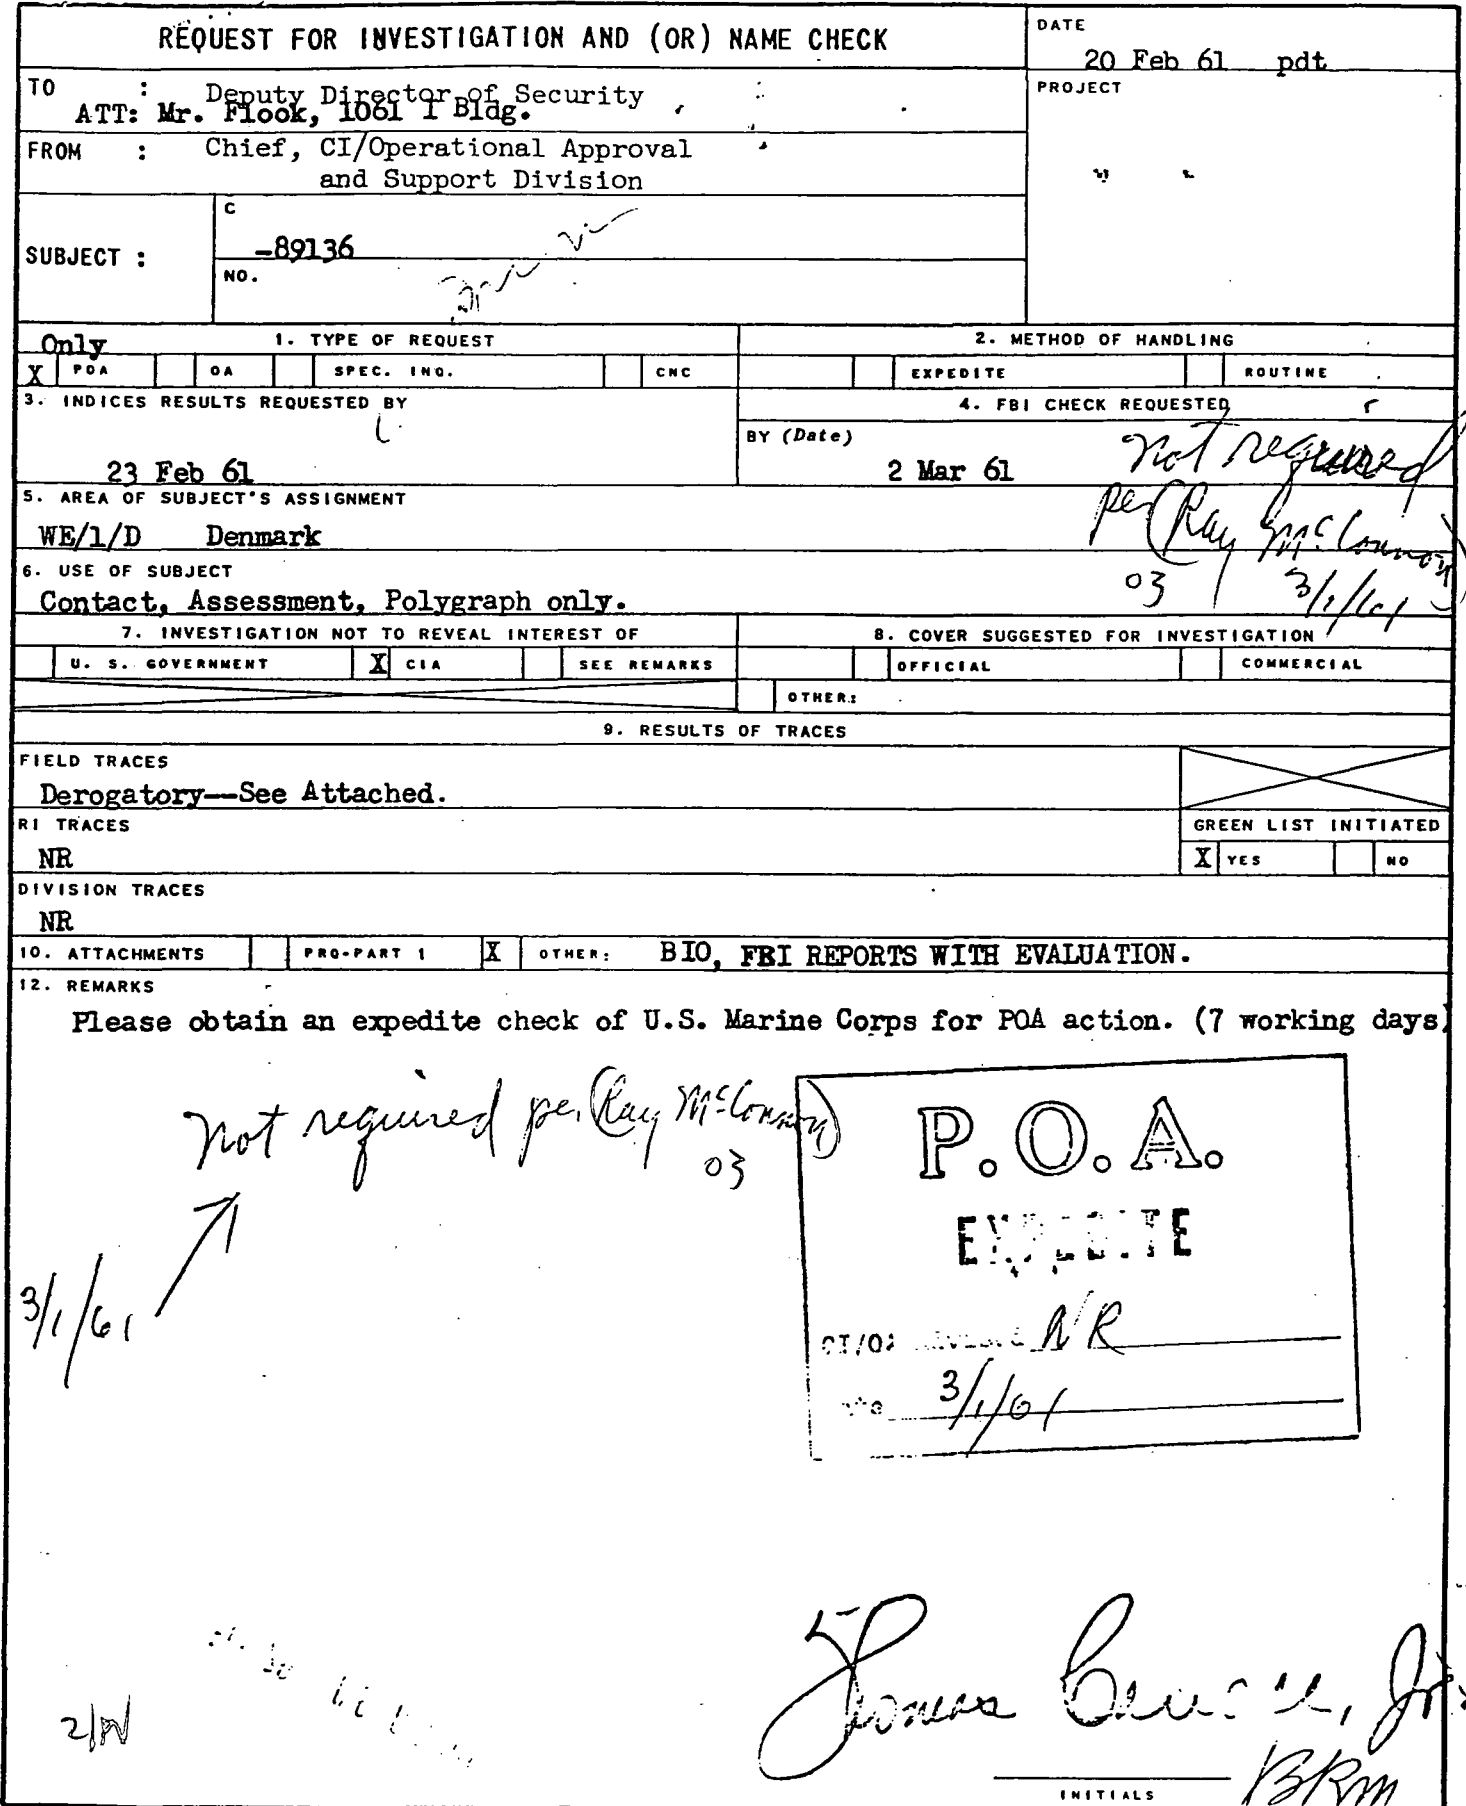 REQUEST FOR INVESTIGATION AND (OR) NAME CHECK
DATE
20 Feb 61 pdt
TO : Deputy Director of Security
ATT: Mr. Flook, 1061 I Bldg.
PROJECT
FROM : Chief, CI/Operational Approval
and Support Division
SUBJECT :
C
-89136
NO.
Only
1. TYPE OF REQUEST
2. METHOD OF HANDLING
X POA OA SPEC. INQ. CNC EXPEDITE ROUTINE
3. INDICES RESULTS REQUESTED BY
23 Feb 61
4. FBI CHECK REQUESTED
BY (Date)
2 Mar 61
not required
per (Ray McConnon)
03 3/1/61
5. AREA OF SUBJECT'S ASSIGNMENT
WE/1/D Denmark
6. USE OF SUBJECT
Contact, Assessment, Polygraph only.
7. INVESTIGATION NOT TO REVEAL INTEREST OF
8. COVER SUGGESTED FOR INVESTIGATION
U. S. GOVERNMENT X CIA SEE REMARKS OFFICIAL COMMERCIAL
OTHER:
9. RESULTS OF TRACES
FIELD TRACES
Derogatory--See Attached.
RI TRACES
NR
GREEN LIST INITIATED
X YES NO
DIVISION TRACES
NR
10. ATTACHMENTS PRQ-PART 1 X OTHER: BIO, FBI REPORTS WITH EVALUATION.
12. REMARKS
Please obtain an expedite check of U.S. Marine Corps for POA action. (7 working days)
not required per (Ray McConnon)
03
3/1/61
P.O.A.
EXPEDITE
NR
3/1/61
Thomas Jr.
INITIALS
BRM